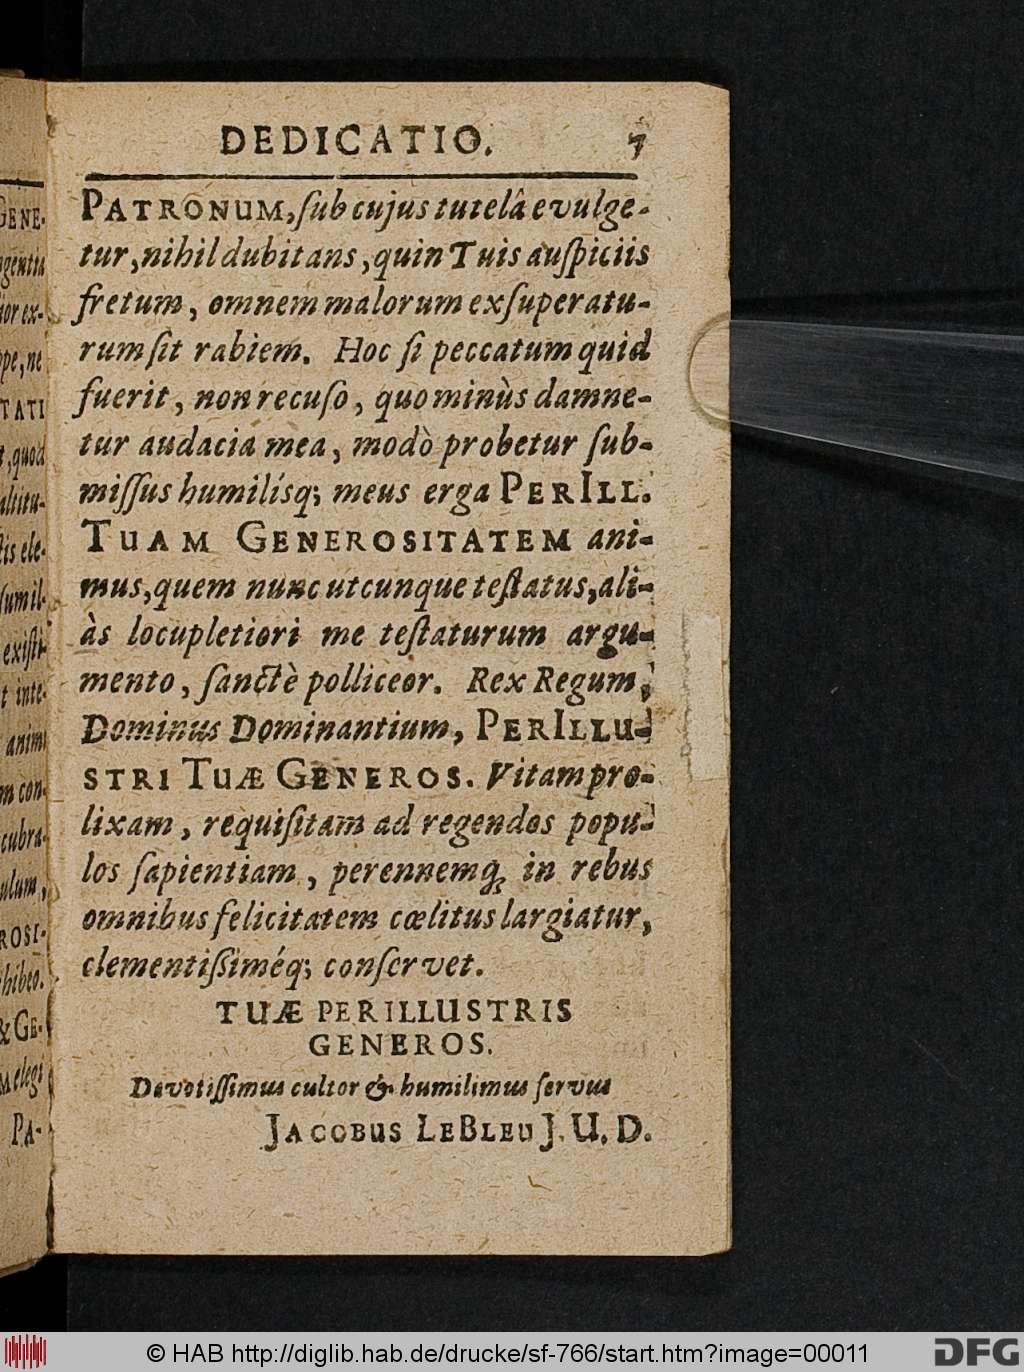 DEDICATIO. 7
PATRONUM, ſub cujus tutelâ evulge-
tur, nihil dubitans, quin Tuis auſpiciis
fretum, omnem malorum exſuperatu-
rum ſit rabiem. Hoc ſi peccatum quid
fuerit, non recuſo, quo minùs damne-
tur audacia mea, modò probetur ſub-
miſſus humilísq; meus erga PERILL.
TUAM GENEROSITATEM ani-
mus, quem nunc utcunque teſtatus, ali-
às locupletiori me teſtaturum argu-
mento, ſanctè polliceor. Rex Regum,
Dominus Dominantium, PERILLU-
STRI TUÆ GENEROS. Vitam pro-
lixam, requiſitam ad regendos popu-
los ſapientiam, perennemq; in rebus
omnibus felicitatem cœlitus largiatur,
clementiſſiméq; conſervet.
TUÆ PERILLUSTRIS
GENEROS.
Devotiſſimus cultor & humilimus ſervus
JACOBUS LEBLEU J. U. D.
GENE-
igentia
ior ex-
ppe, ne
TATI
t, quod
altitu-
tis ele-
ſum il-
exiſti-
t inte-
animi
m con-
cubra-
ulum,
ROSI-
hibeo.
& GE-
M elegi
PA-
© HAB http://diglib.hab.de/drucke/sf-766/start.htm?image=00011
DFG